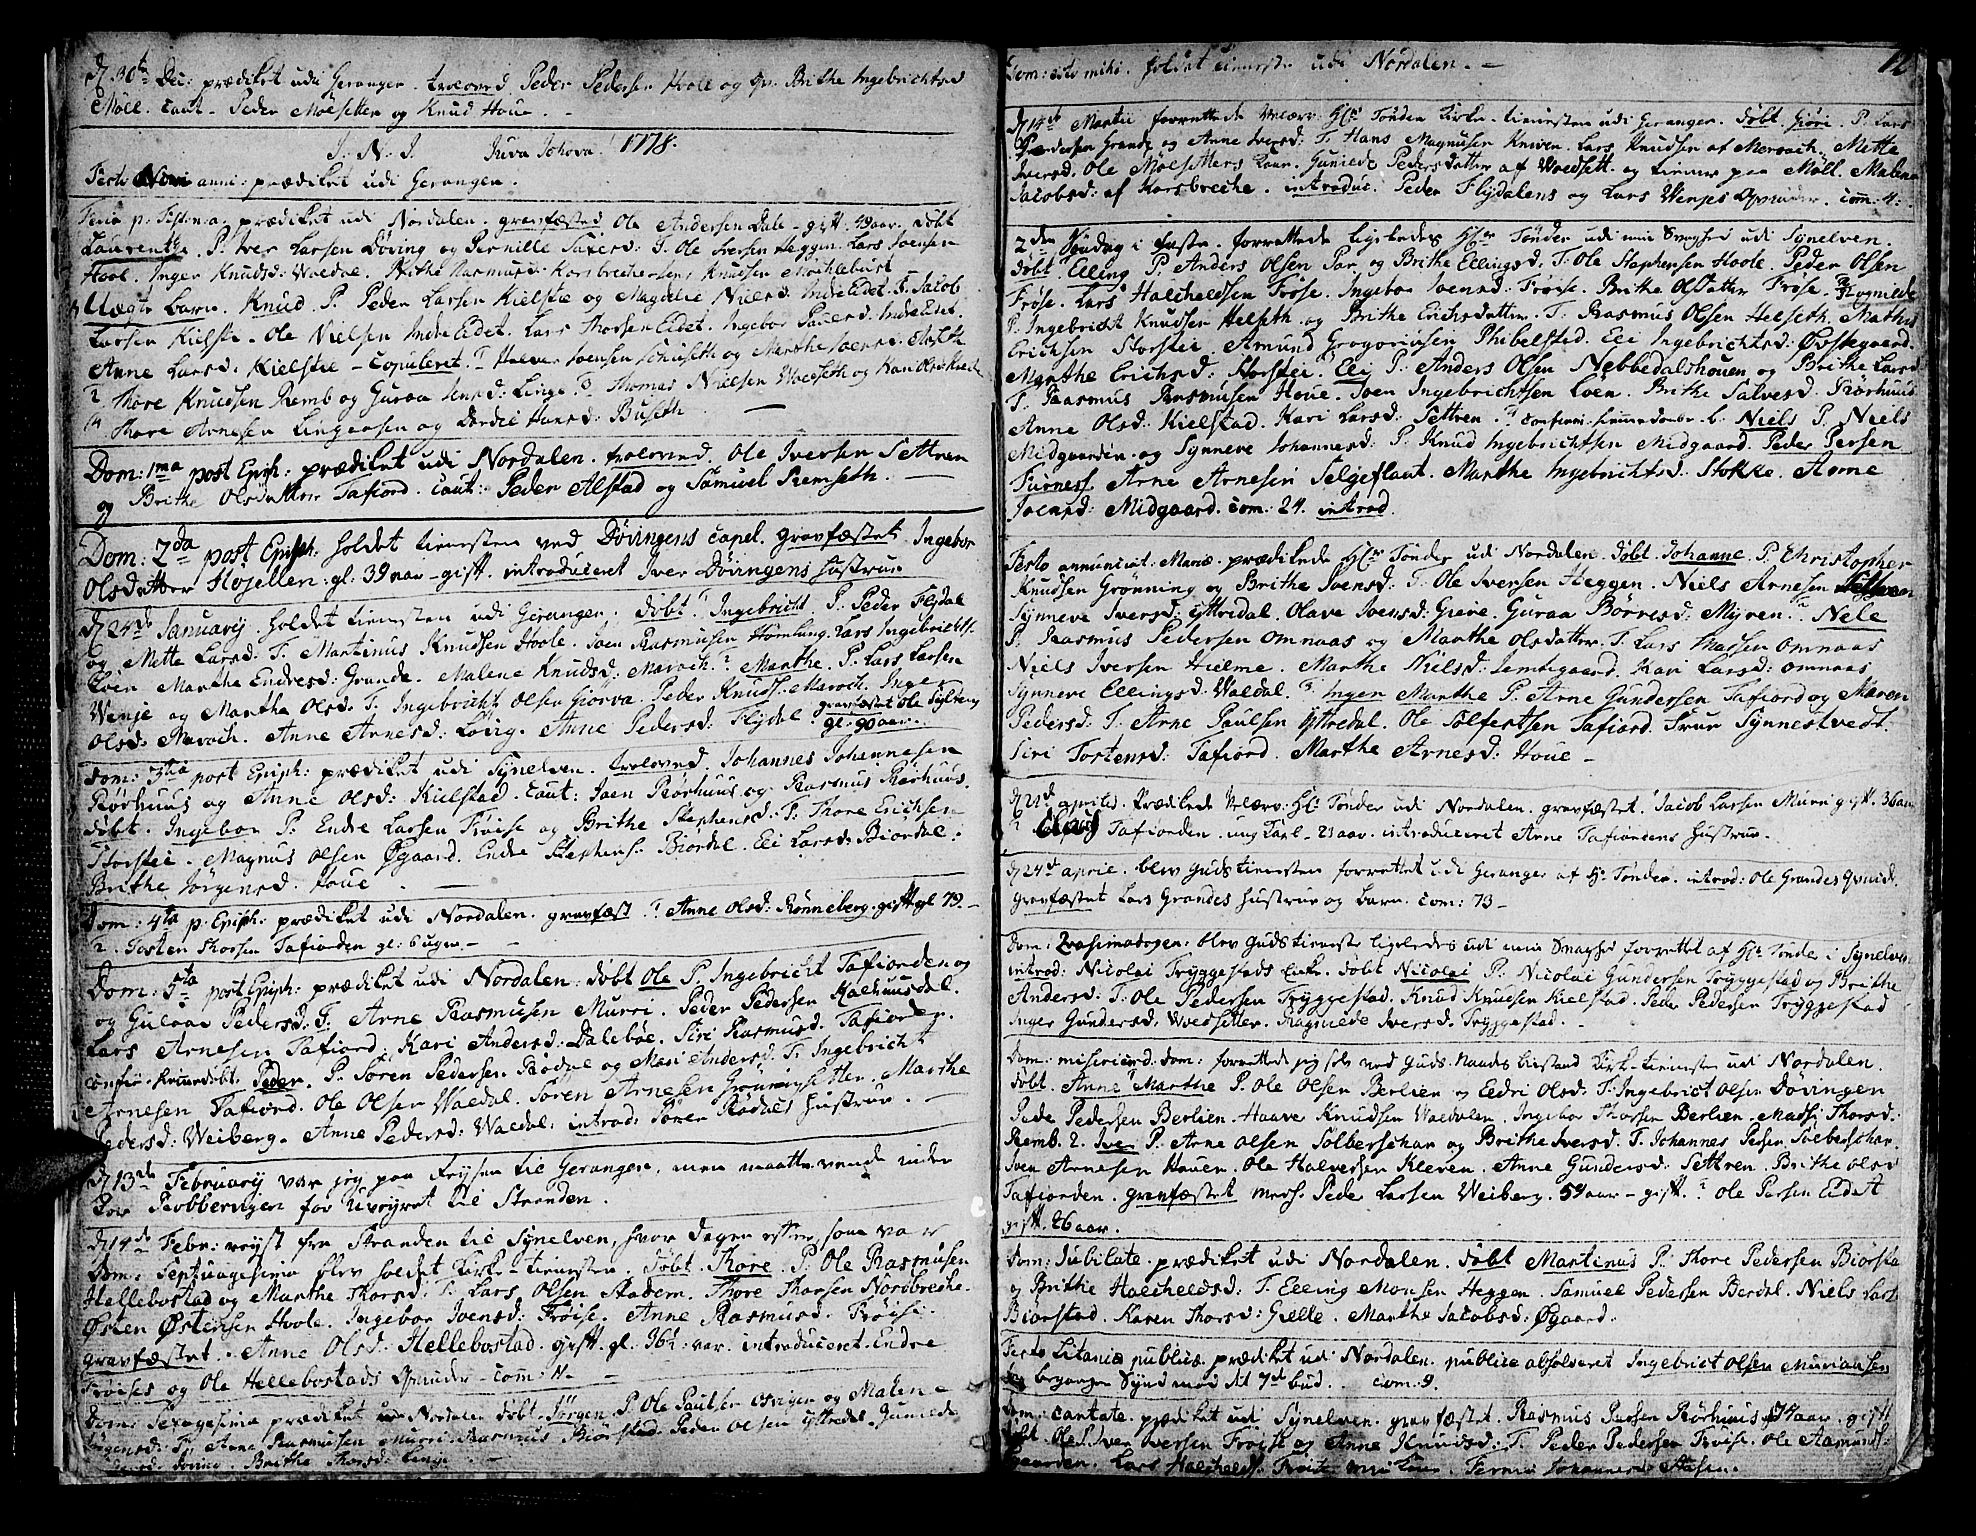 d 30te Dec: prædiket udi Geranger. troloved Peder Pedersen Hoell og Qv. Brithe Ingebrichtsd
Möll. caut. Peder Möesetter og Knud Houe.
J. N. J. Juva Jehova! 1778.
Festo Novi anni: prædiket udi Geranger.
Feria p. Fest: n. a. prædiket udi Nordalen. gravfæsted. Ole Andersen Dale gift. 49 aar. döbt
Laurenthe P. Iver Larsen Döving og Pernille Tafiord: T. Ole Iversen Heggen. Lars Joensen
Hoel. Inger Knudsd: Waldal. Brithe Rasmusd: Korsbrechersen, Knud Michlebust
Uægte Barn. Knud. P. Peder Larsen Kielstæ og Magdele Nielsd: Indre Eidet. T. Jacob
Larsen Kielstæ. Ole Nielsen Indre Eidet. Lars Thorsen Eidet. Ingebor Paulsd: Indre Eidet.
Anne Larsd: Kielstæ - copuleret. 1 Halvor Joensen Schuseth og Marthe Joensd:
2 Thore Knudsen Remb og Guraa Jensd: Linge. 3 Thomas Nielsen Woldseth og Kari Olsd
4 Thore Arnesen Lingeosen og Dordie Hansd: Buseth.
Dom: 1ma post Epiph: prædiket udi Nordalen. trolovced. Ole Iversen Settren
og Brithe Olsdatter Tafiord. caut: Peder Alstad og Samuel Remseth.
Dom: 2da post Epiph. holdet tienesten ved Dövingens Capel. gravfæstet Ingebor
Olsdatter Hosellen: gl: 39 aar - gift. introduceret Iver Dövingens hustrue
d 24de Januarij holdet tienesten udi Geranger. döbt 1 Ingebricht. P. Peder Flydal
og Mette Larsd: T. Martinus Knudsen Hoole. Joen Rasmusen Homlung. Lars Ingebrichts.
Eoen Marthe Endresd: Grande. Malene Knudsd: Maroch. 2 Marthe. P. Lars Larsen
Wenje og Marthe Olsd: T. Ingebricht Olsen Giörva. Peder Knuds: Maroch. Inger
Olsd: Maroch. Anne Arnesd: Lövig. Anne Pedersd: Flydal. gravfæstet Ole Sylteng
gl: 90 aar.
Dom: 3tia post Epiph: prædiket udi Synelven. trolovced. Johannes Johannesen
Rörhuus og Anne Olsd: Kielstad. caut: Joen Rörhuus og Rasmus Rörhuus.
döbt. Ingebor P: Endre Larsen Fröise og Brithe Stephensd: T: Thore Erichsen
Storstei. Magnus Olsen Øgaard. Endre Stephens. Biördal. Eli Larsd: Biordal.
Brithe Jörgensd: Houe.
Dom: 4ta p. Epiph: prædiket udi Nordalen. gravfæst. 1 Anne Olsd: Rönneberg. gift gl 79.
2. Tosten Thorsen Tafiorden gl: 6 uger.
Dom: 5ta post Epiph: prædiket udi Nordalen: döbt Ole P. Ingebricht Tafiorden og
og Gulaae Pedersd: T. Arne Rasmusen Murri. Peder Pedersen Kalhuusdal.
Lars Arnesen Tafiord. Kari Andersd: Daleböe. Siri Rasmusd: Tafiorden.
confir. hiemedöbt. Peder. P. Sören Pedersen Rödal og Mari Andersd. T. Ingebricht
Arnesen Tafiord. Ole Olsen Waldal. Sören Arnesen Grönningsetter. Marthe
Pedersd: Weiberg. Anne Pedersd: Waldal: introd: Sören Rödals hustrue.
d 13de Februarij var jeg paa Reysen til Geranger, men maatte vende inder
for Robberingen for Uveyret til Stranden.
d 14de Febr: reyst fra Stranden til Synelven, hvor dagen efter, som var
Dom: Septuagesima blev holdet Kirke-tienesten. döbt. Thore. P. Ole Rasmusen
Hellebostad og Marthe Thorsd: T. Lars Olsen Stadem. Thore Thorsen Nordbreche
Østen Østensen Hoole. Ingebor Joensd: Fröise. Anne Rasmusd: Fröise.
gravfæstet. Anne Olsd: Hellebostad. gift. gl. 36½: var. introduceret Endre
Fröises og Ole Hellebostads Qvinder - com: 11.
Dom: Sexagesima prædiket udi Nordalen döbt. Jörgen. P. Ole Paulsen Osvigen og Malene
Jörgensd: T. Arne Rasmusen Murri. Rasmus Biörstad. Peder Olsen Yttredal. Gunilde
Brithe Thorsd: Linge.
Dom: esto mihi. holdet tieneste udi Nordalen. 12
d 14de Martii forrettede Velærv: Hr Tönder Kirke-tienesten udi Geranger. döbt Giöri. P. Lars
Pedersen Grande og Anne Iversd: T. Hans Magnusen Kniven. Lars Knudsen af Meroach. Mette
Iversd. Ole Moesetters Kaar. Gunilde Pedersdatter af Woldsett. og tiener paa Möll. Malene
Jacobsd: af Korsbreche. introduc: Peder Flydalens og Lars Wenjes Qvinder. com: 4.
2den Söndag i faste. forrettede ligeledes Hr Tönder udi min Svaghed udi Synelven.
döbt Elling P. Anders Olsen Par, og Brithe Ellingsd. T. Ole Stephensen Hoole. Peder Olsen
Fröse. Lars Halcheldsen Fröse. Ingebor Joensd: Fröise. Brithe Olsdatter Fröse. 2 Rognilde
P. Ingebricht Knudsen Helseth og Brithe Erichsdatter. T. Rasmus Olsen Helseth. Mathis
Erichsen Storstei. Amund Gregoriusen Phibelstad. Eli Ingebrichtsd: Øvstegaard.
Marthe Erichsd: Storstei. Eli P: Anders Olsen Nebbedalshouen og Brithe Larsd
T. Rasmus Rasmusen Houe. Joen Ingebrichtsen Löen. Brithe Salvesd. Rörhuus
Anne Olsd: Kielstad. Kari Larsd: Settren. confirm: hiemedöbte b. Niels P. Niels
Midgaarden og Synneve Johannesd: P. Knud Ingebrichtsen Midgaard. Peder Persen
Furnes. Arne Arnesen Selgeflaut. Marthe Ingebrichtsd: Stokke. Anne
Joensd: Midgaard. com: 24. introd.
Festo annunciat: Mariæ prædikede Hr Tönder udi Nordalen. döbt. Johanne P. Christopher
Knudsen Grönning og Brithe Joensd: T. Ole Iversen Heggen. Niels Arnesen
Synneve Iversd: Yttredal. Olave Joensd: Greve. Guraa Börresd: Myren. 2 Nele
P. Rasmus Pedersen Omnaas og Marthe Olsdatter. T. Lars Madsen Omnaas
Niels Iversen Hielme. Marthe Nielsd: Jemtegaard. Kari Larsd: Omnaas
Synneve Ellingsd: Waldal. 3 Ingen Marthe P. Arne Gundersen Tafiord og Maren
Pedersd: T. Arne Paulsen Yttredal. Ole Solfestsen Tafiord. Ivar Synnestvedt.
Siri Tostensd: Tafiord. Marthe Arnesd: Houe -
d 21de aprilis. Prædikede Velærv: Hr: Tönder udi Nordalen. gravfæstet 1 Jacob Larsen Murri gift. 36 aar
2 Tafiorden. ung Karl - 21 aar. introduceret Arne Tafiordens Hustrue.
d 24de april. blev Gudstienesten forrettet udi Geranger af Hr Tönder. introd: Ole Grandes Qvinde.
gravfæstet Lars Grandes Hustrue og barn. com: 73 -
Dom: Qvasimodogen: blev Guds tieneste ligeledes udi min Svaghed forrettet af Hr Tönder i Synelv:
introd: Nicolai Tryggestads Enke. döbt Nicolai P. Nicolai Gundersen Tryggestad og Brithe
Andersd: T. Ole Pedersen Tryggestad. Knud Knudsen Kielstad. Peder Pedersen Tryggestad
Inger Gundersd: Woldsetter. Ragnilde Iversd. Tryggestad.
Dom: misericord: dom: forrettede jeg selv ved Guds Naades bistand Kirke-tienesten udi Nordalen.
döbt. Anne Marthe P. Ole Olsen Berlien og Eedri Olsd: T. Ingebrict Olsen Dövingen
Pede Pedersen Berlien. Haave Knudsen Waldalen. Ingebor Thorsen Berlien. Madsi Thorsd:
Remb. 2. Iver P. Arne Olsen Solberschar og Brithe Iversd. T. Johannes Persen Solberschar.
Iver Arnesen Houen. Ole Halversen Kleven. Anne Gundersd: Settren. Brithe Olsd
Tafiorden. gravfæstet Mons. Peder Larsen Weiberg. 54 aar - gift. 2 Ole Persen Eidet
gift. 26 aar.
Dom: Jubilate. prædiket udi Nordalen. döbt Martinus P. Thore Pedersen Biörsta
og Brithe Halcheldsd: T. Elling Monsen Heggen. Samuel Pedersen Berdal. Niels Lars
Biörstad. Karen Thorsd: Gielle. Marthe Jacobsd: Øgaard.
Festo Litaniæ publicæ prædiket udi Nordalen. publice absolveret Ingebrict Olsen
begangen Synd mod det 7de bud. com: 9.
Dom: cantate. prædiket udi Synelven. gravfæstet. Rasmus Larsen Rörhuus 74 aar. gift
döbt. Ole P. Iver Iversen Fröise og Anne Knudsd: T. Peder Pedersen Fröise. Ole Aamunds.
Gaarden. Lars Halchelds. Fröise Johannesd: